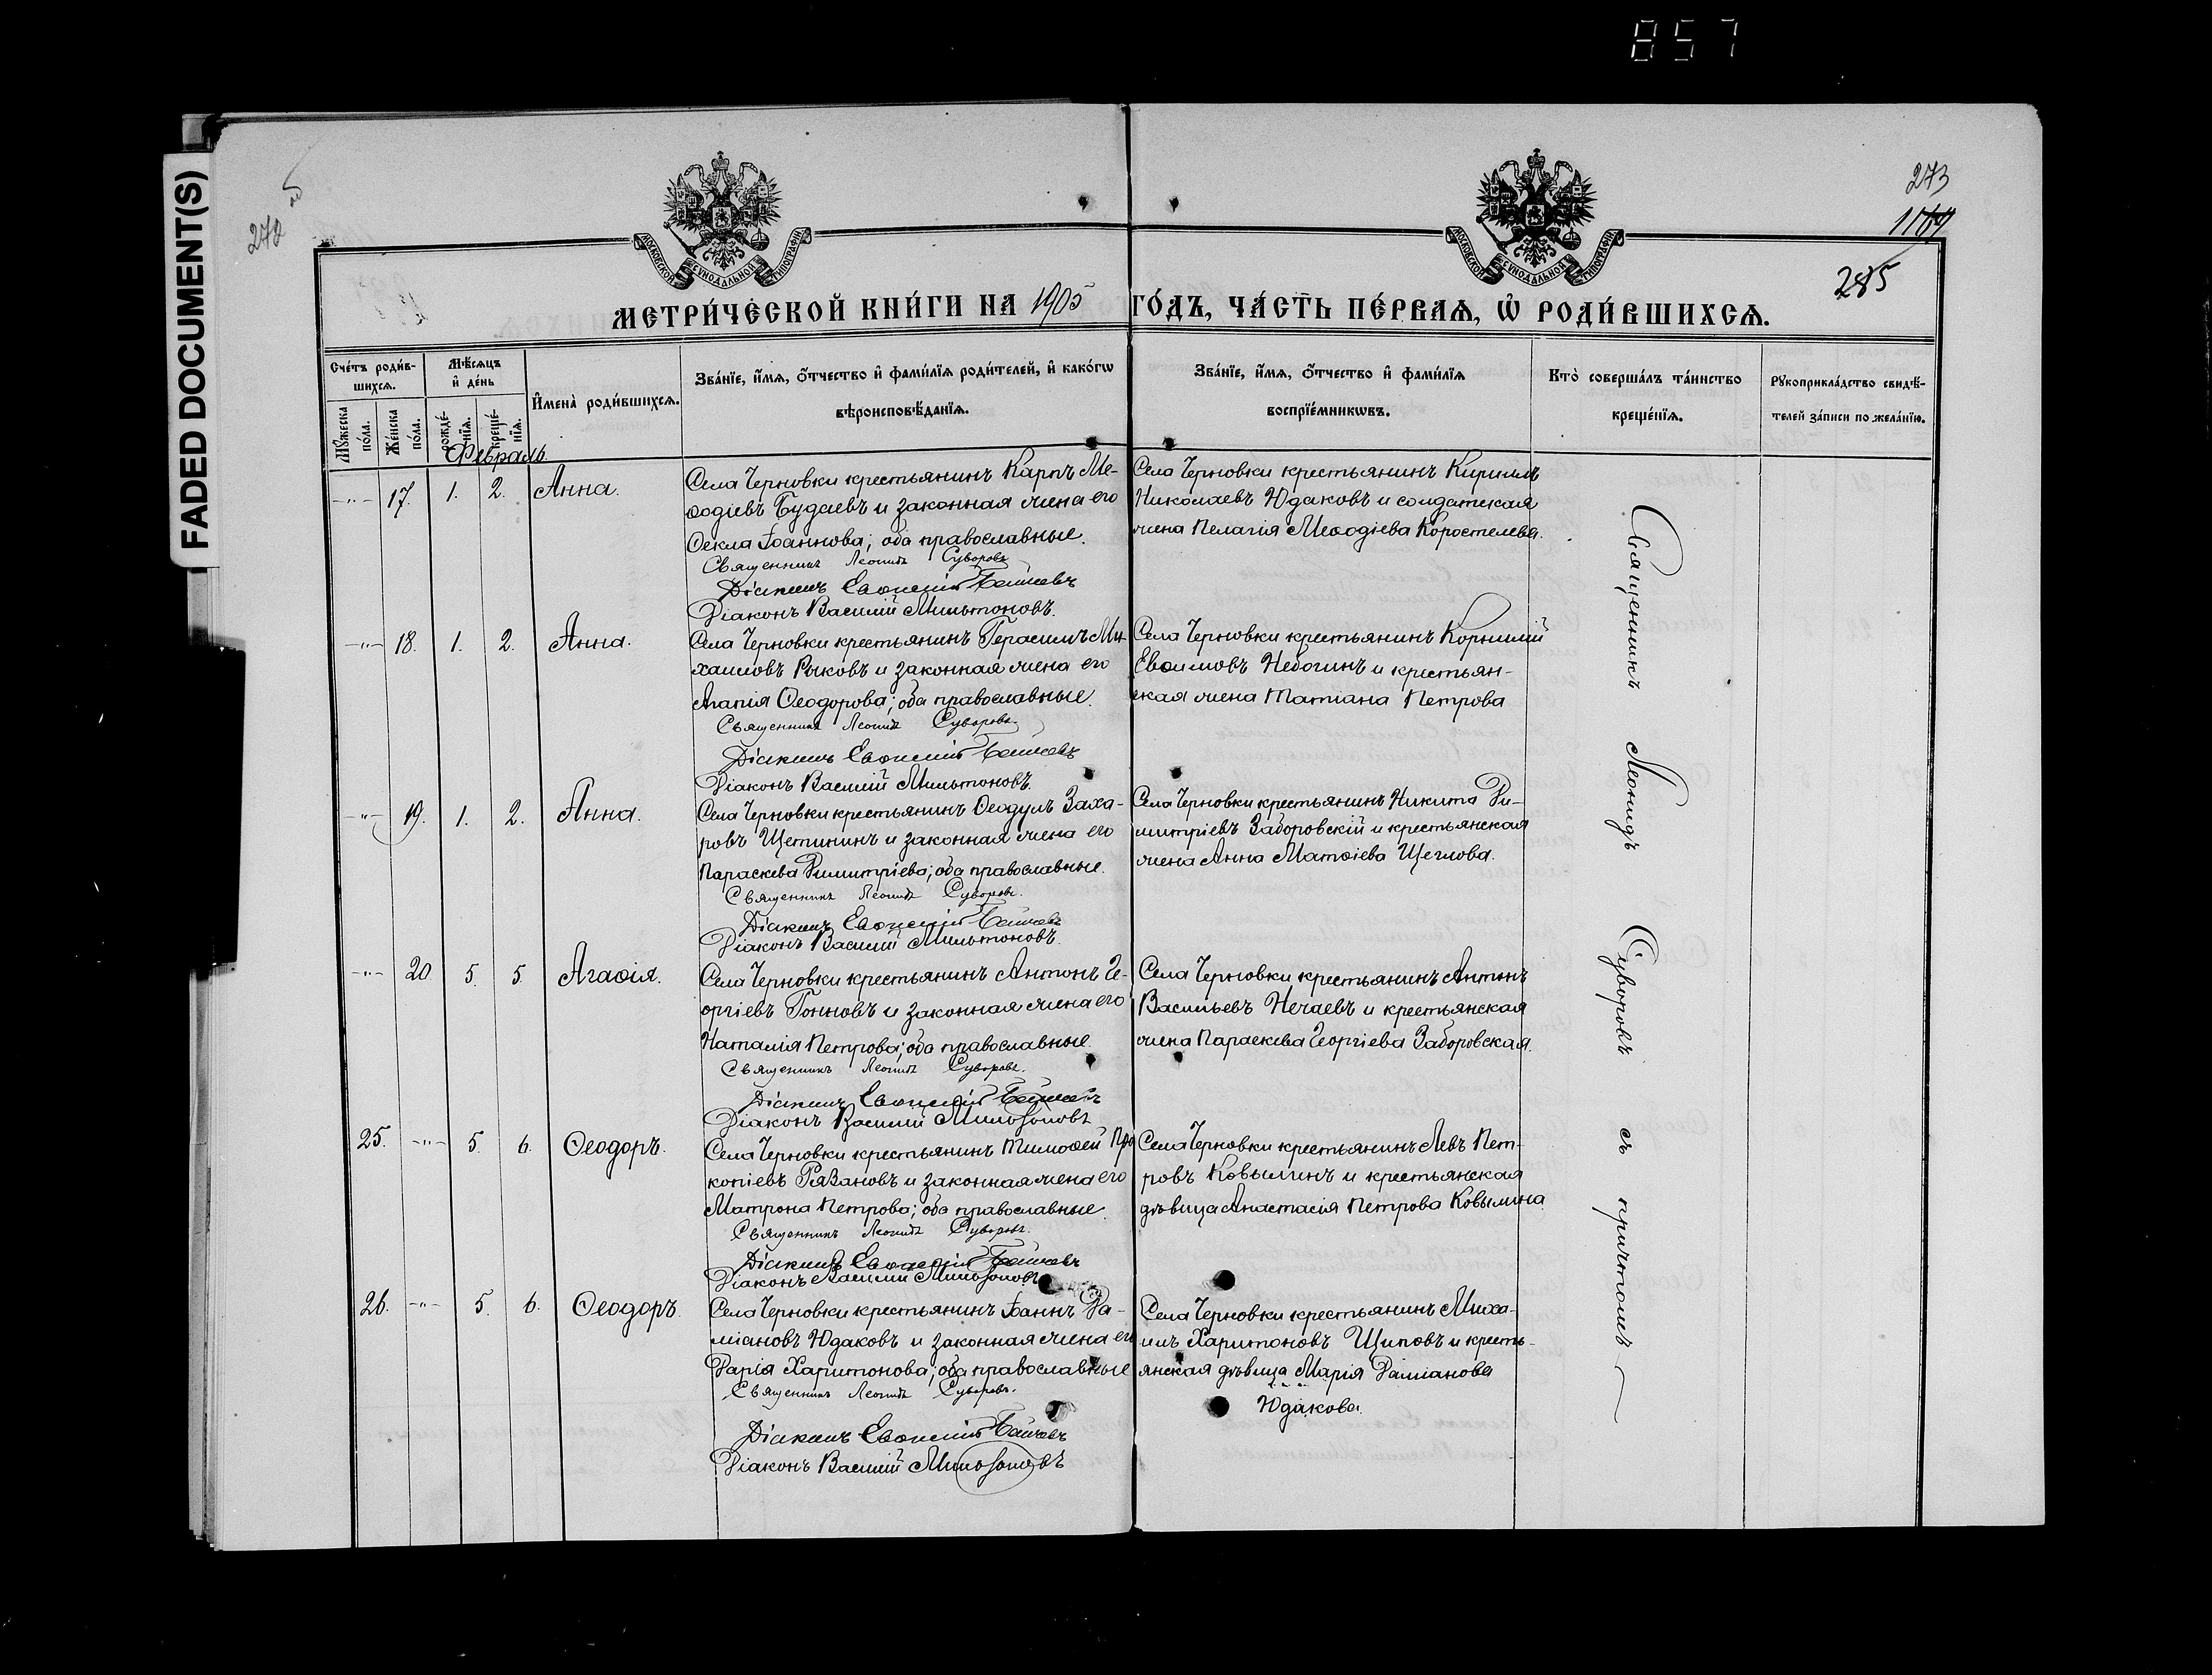 857
FADED DOCUMENT(S)
272
273
1164
285
МОСКОВСКОЙ СѴНОДАЛЬНОЙ ТИПОГРАФІИ
МОСКОВСКОЙ СѴНОДАЛЬНОЙ ТИПОГРАФІИ
МЕТРИ́ЧЕСКОЙ КНИ́ГИ НА 1905 ГО́ДЪ, ЧА́СТЬ ПЕ́РВАѦ, Ѡ҆ РОДИ́ВШИХСѦ.
Сче́тъ роди́в-
шихсѧ.
Мꙋ́жеска по́ла.
Же́нска по́ла.
Мѣ́сѧцъ и҆ де́нь
рожде́-
нїѧ.
креще́-
нїѧ.
И҆мена̀ роди́вшихсѧ.
Зва́нїе, и҆́мѧ, ѻ҆́тчество и҆ фами́лїѧ роди́телей, и҆ како́гѡ
вѣроисповѣ́данїѧ.
Зва́нїе, и҆́мѧ, ѻ҆́тчество и҆ фами́лїѧ
воспрїе́мникѡвъ.
Кто̀ соверша́лъ та́инство
креще́нїѧ.
Рꙋкоприкла́дство свидѣ́-
телей за́писи по жела́нїю.
Февраль.
-"- 17. 1. 2. Анна.
Села Черновки крестьянинъ Карпъ Ме-
ѳодіевъ Будаевъ и законная жена его
Ѳекла Іоаннова; оба православные.
Священникъ Леонидъ Суворовъ
Діаконъ Василій Мильтоновъ.
Села Черновки крестьянинъ Кириллъ
Николаевъ Юдаковъ и солдатская
жена Пелагія Меѳодіева Коростелева.
-"- 18. 1. 2. Анна.
Села Черновки крестьянинъ Герасимъ Ми-
хаиловъ Рыковъ и законная жена его
Агапія Ѳеодорова; оба православные.
Священникъ Леонидъ Суворовъ.
Діаконъ Василій Мильтоновъ.
Села Черновки крестьянинъ Корнилій
Евѳимовъ Небогинъ и крестьян-
ская жена Татіана Петрова
-"- 19. 1. 2. Анна.
Села Черновки крестьянинъ Ѳеодулъ Заха-
ровъ Щетининъ и законная жена его
Параскева Димитріева; оба православные.
Священникъ Леонидъ Суворовъ.
Діаконъ Василій Мильтоновъ.
Села Черновки крестьянинъ Никита Ди-
митріевъ Заборовскій и крестьянская
жена Анна Матѳіева Щеглова.
-"- 20 5. 5. Агаѳія.
Села Черновки крестьянинъ Антонъ Ге-
оргіевъ Гонновъ и законная жена его
Наталія Петрова; оба православные.
Священникъ Леонидъ Суворовъ.
Діаконъ Василій Мильтоновъ
Села Черновки крестьянинъ Антонъ
Васильевъ Нечаевъ и крестьянская
жена Параскева Георгіева Заборовская.
25. -"- 5. 6. Ѳеодоръ.
Села Черновки крестьянинъ Тимоѳей Про
копіевъ Рязановъ и законная жена его
Матрона Петрова; оба православные.
Священникъ Леонидъ Суворовъ.
Діаконъ Василій Мильтоновъ
Села Черновки крестьянинъ Левъ Пет-
ровъ Ковылинъ и крестьянская
дѣвица Анастасія Петрова Ковылина.
26. -"- 5. 6. Ѳеодоръ.
Села Черновки крестьянинъ Іоаннъ Да-
міановъ Юдаковъ и законная жена его
Дарія Харитонова; оба православные
Священникъ Леонидъ Суворовъ.
Діаконъ Василій Мильтоновъ
Села Черновки крестьянинъ Миха-
илъ Харитоновъ Щиповъ и кресть-
янская дѣвица Марія Даміанова
Юдакова.
Священникъ Леонидъ Суворовъ съ причтомъ